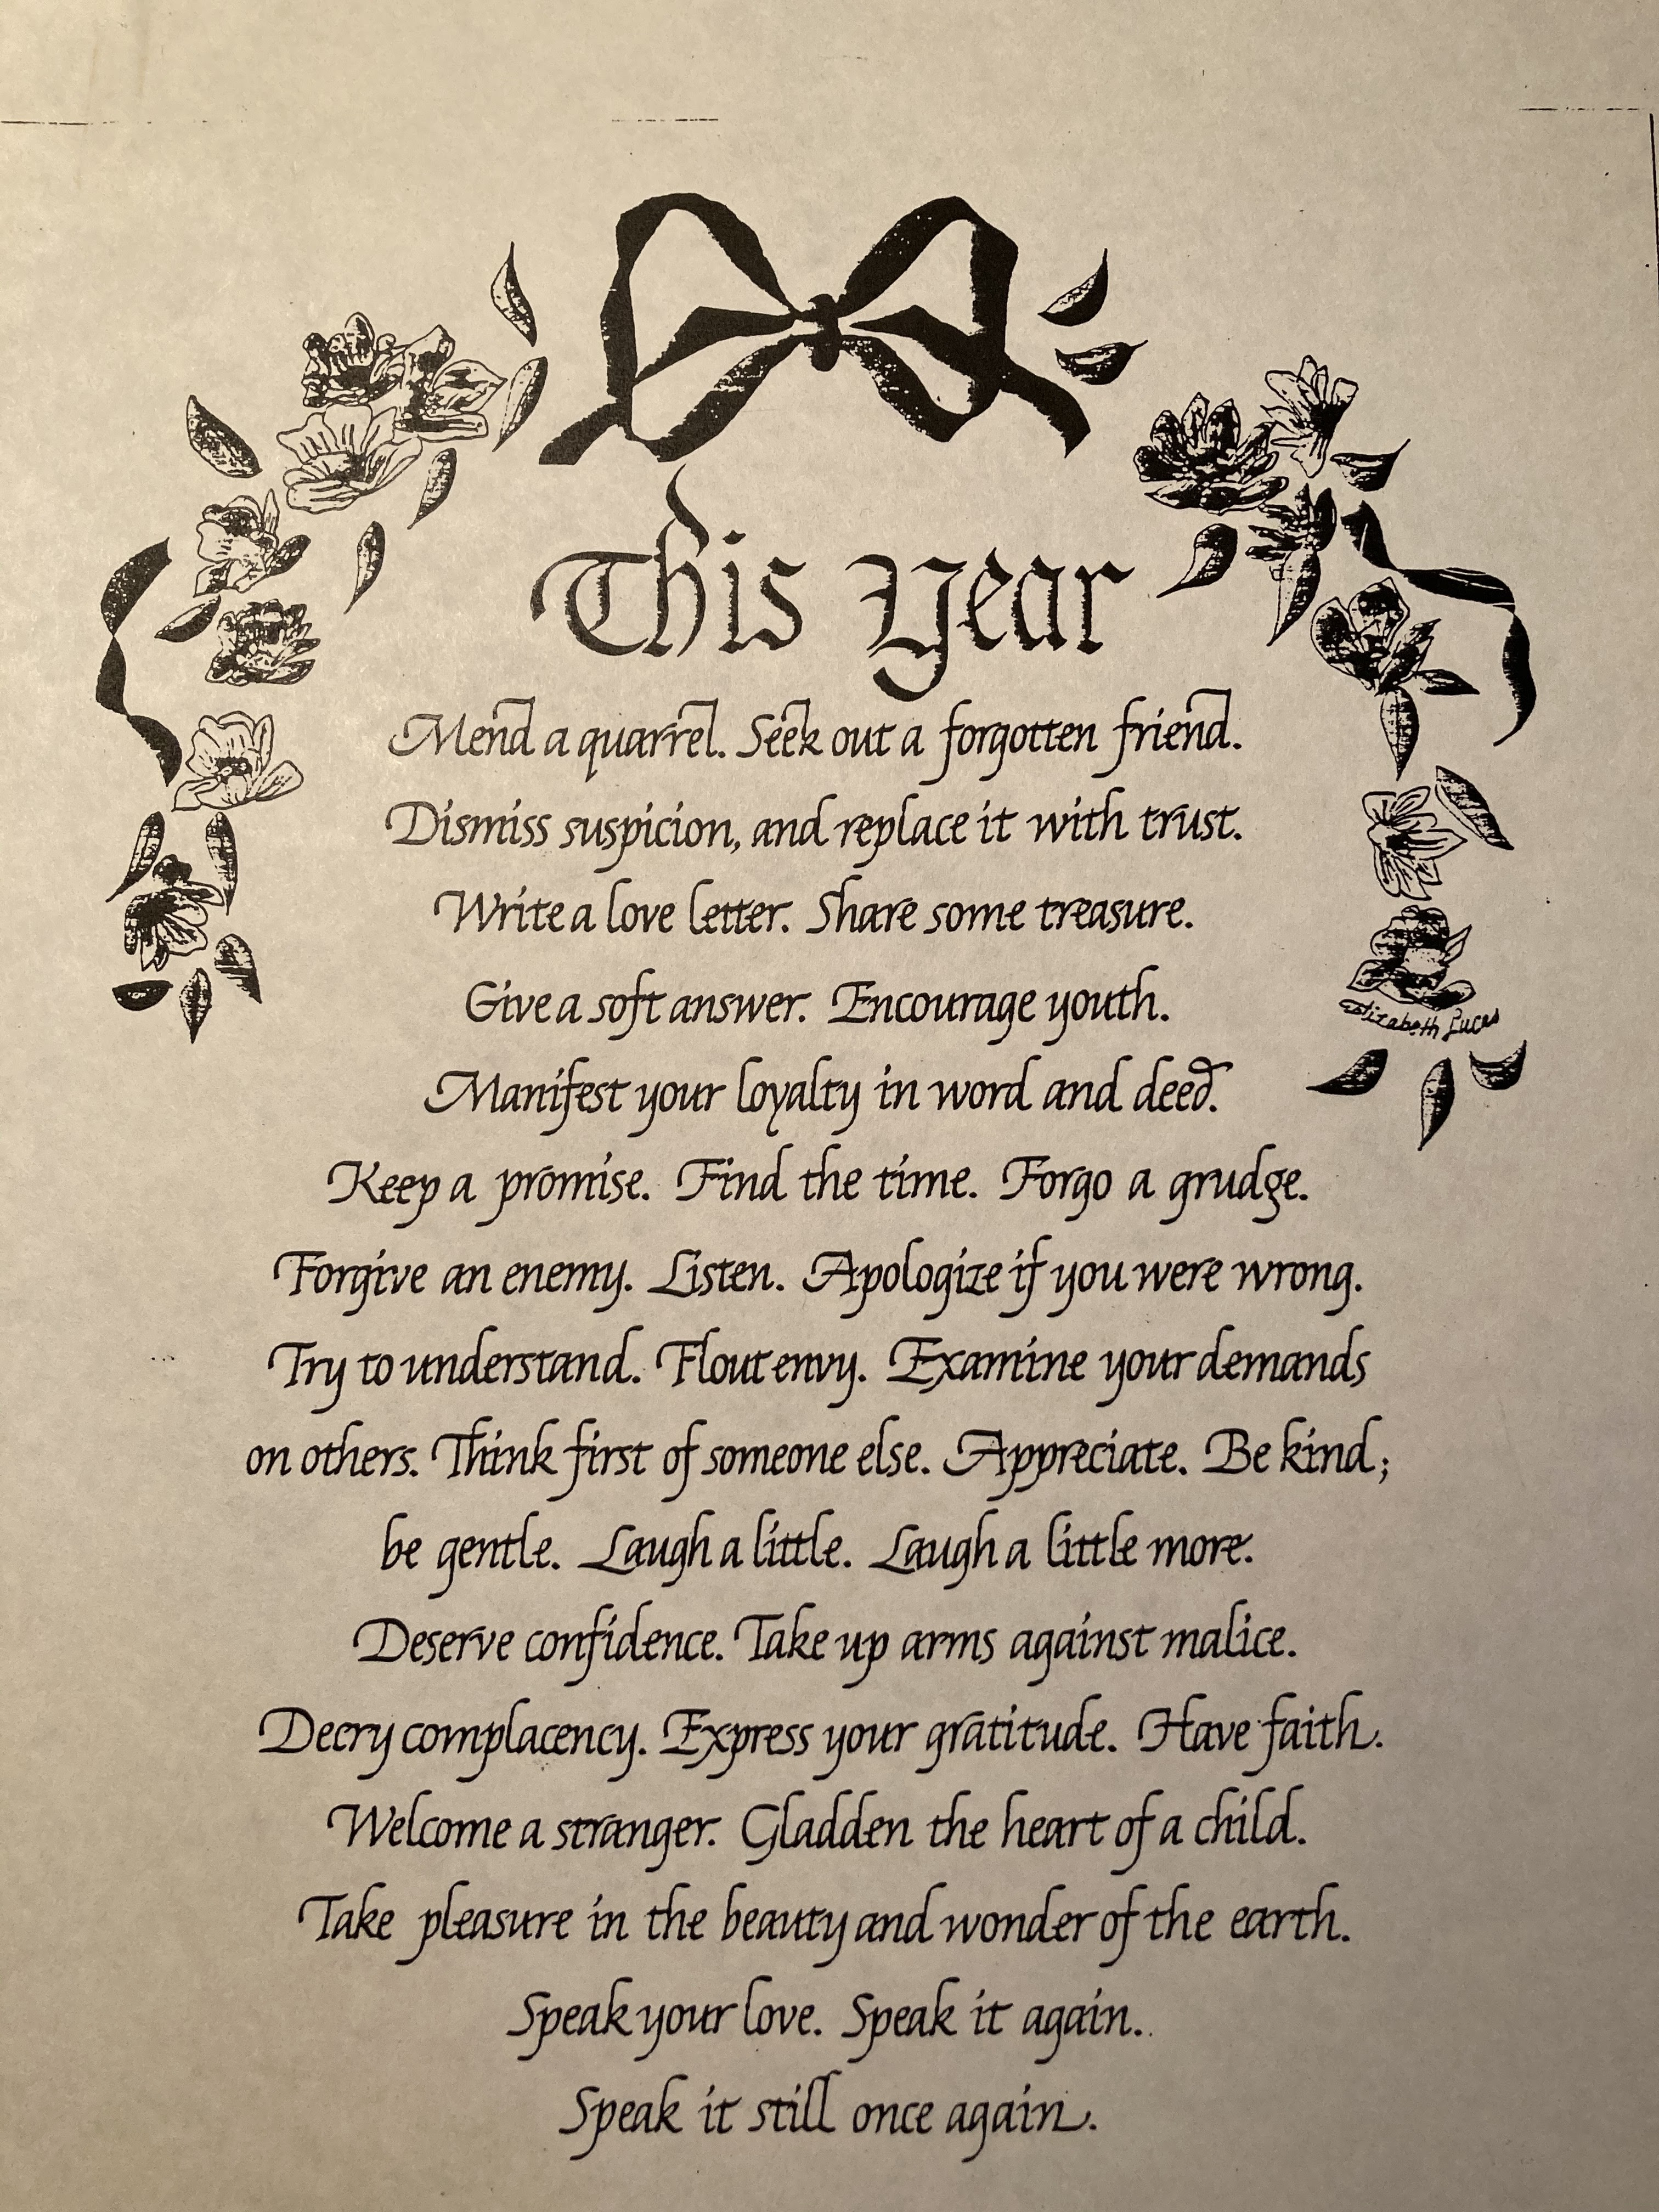 This Year
Mend a quarrel. Seek out a forgotten friend.
Dismiss suspicion, and replace it with trust.
Write a love letter. Share some treasure.
Give a soft answer. Encourage youth.
Elizabeth Lucas
Manifest your loyalty in word and deed.
Keep a promise. Find the time. Forgo a grudge.
Forgive an enemy. Listen. Apologize if you were wrong.
Try to understand. Flout envy. Examine your demands
on others. Think first of someone else. Appreciate. Be kind;
be gentle. Laugh a little. Laugh a little more.
Deserve confidence. Take up arms against malice.
Decry complacency. Express your gratitude. Have faith.
Welcome a stranger. Gladden the heart of a child.
Take pleasure in the beauty and wonder of the earth.
Speak your love. Speak it again.
Speak it still once again.